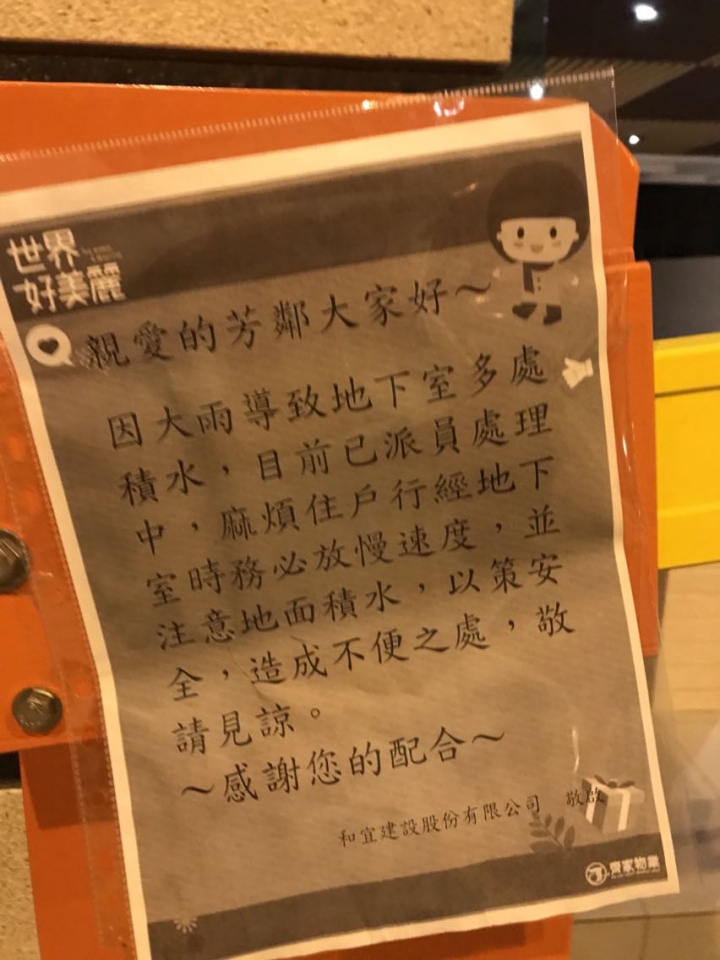 世界
好美麗
親愛的芳鄰大家好～
因大雨導致地下室多處
積水，目前已派員處理
中，麻煩住戶行經地下
室時務必放慢速度，並
注意地面積水，以策安
全，造成不便之處，敬
請見諒。
～感謝您的配合～
和宜建設股份有限公司 敬啟
齊家物業